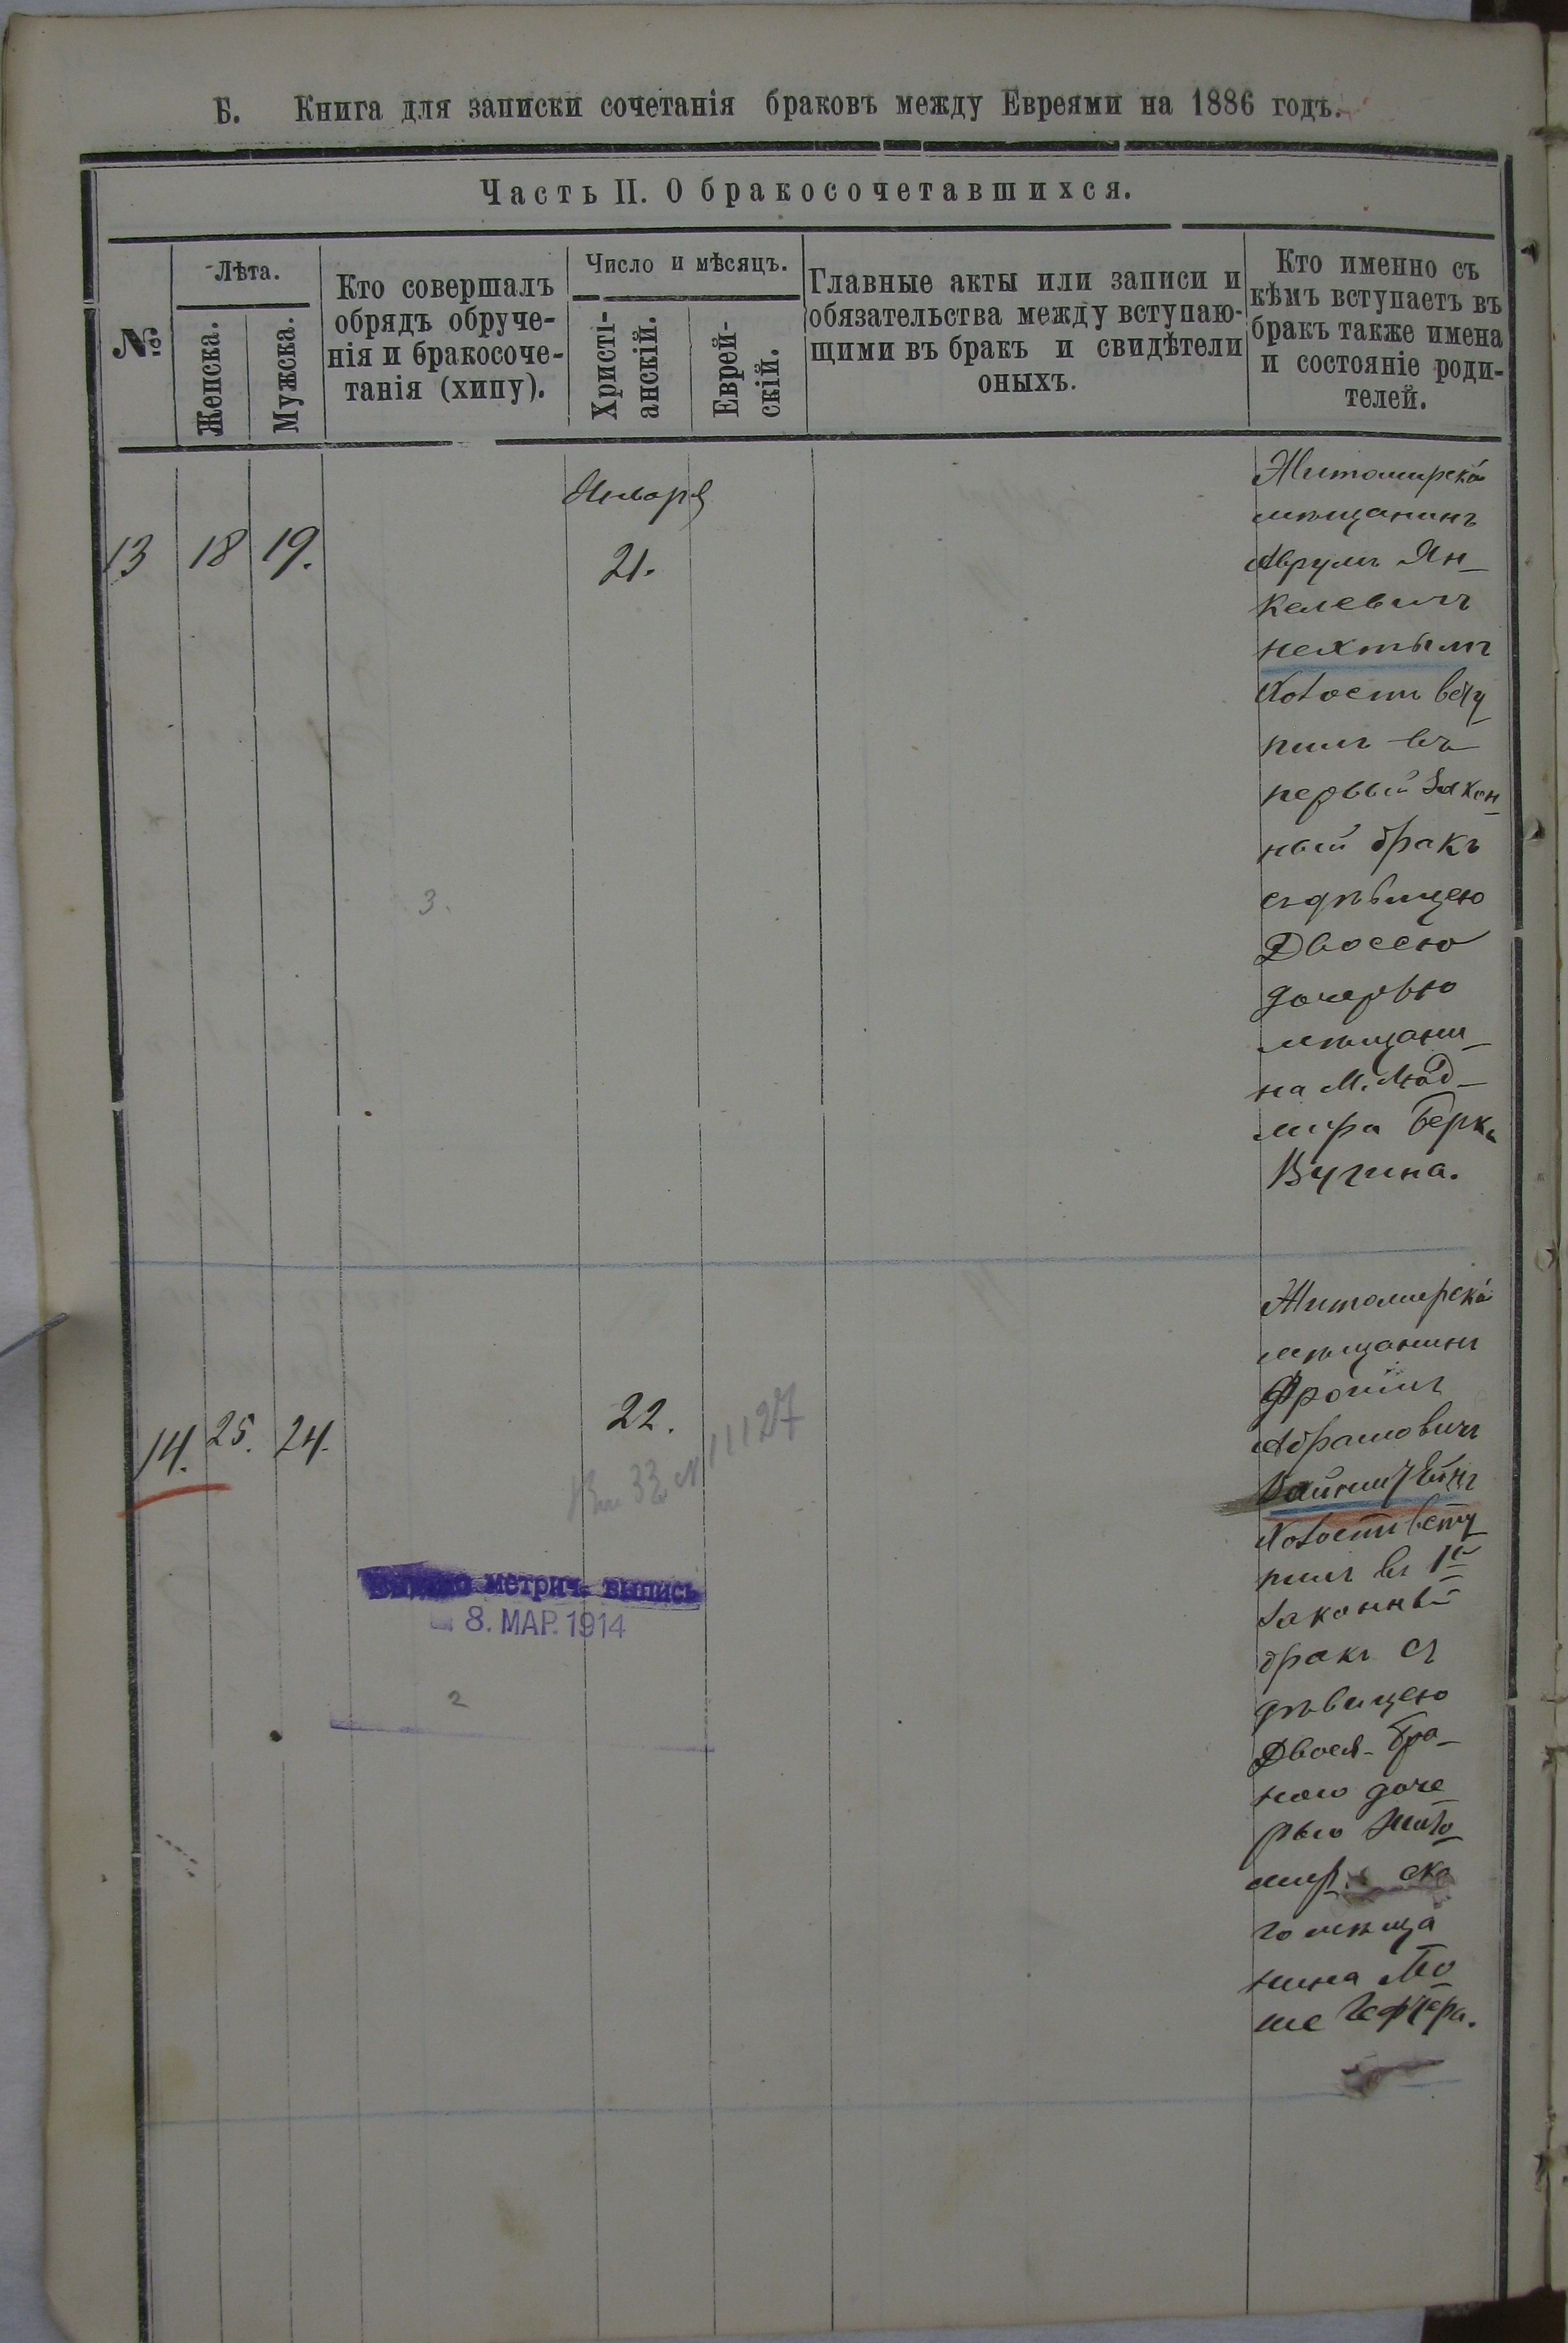 Б. Книга для записки сочетанія браковъ между Евреями на 1886 годъ.
Часть II. О бракосочетавшихся.
№
Лѣта.
Женска.
Мужска.
Кто совершалъ
обрядъ обруче-
нія и бракосоче-
танія (хипу).
Число и мѣсяцъ.
Христі-
анскій.
Еврей-
скій.
Главные акты или записи и
обязательства между вступаю-
щими въ бракъ и свидѣтели
оныхъ.
Кто именно съ
кѣмъ вступаетъ въ
бракъ также имена
и состояніе роди-
телей.
Января
13 18 19. 21.
Житомирскій
мѣщанинъ
Аврумъ Ян-
келевичъ
Нехтымъ
Холостъ всту
пилъ въ
первый закон-
ный бракъ
съ дѣвицею
Двосею
дочерью
мѣщани-
на М.
мира Берка
Вугина.
3.
14. 25. 24. 22.
33 N 11127
метрич. выпись
8. МАР. 1914
2
Житомирскій
мѣщанинъ
Фроимъ
Абрамовичъ
Холостъ всту
пилъ въ 1й
законный
бракъ съ
дѣвицею
Двося-Бра-
ною доче
рью Жито
мир ска
го мѣща
нина Мо
ше Гефтера.